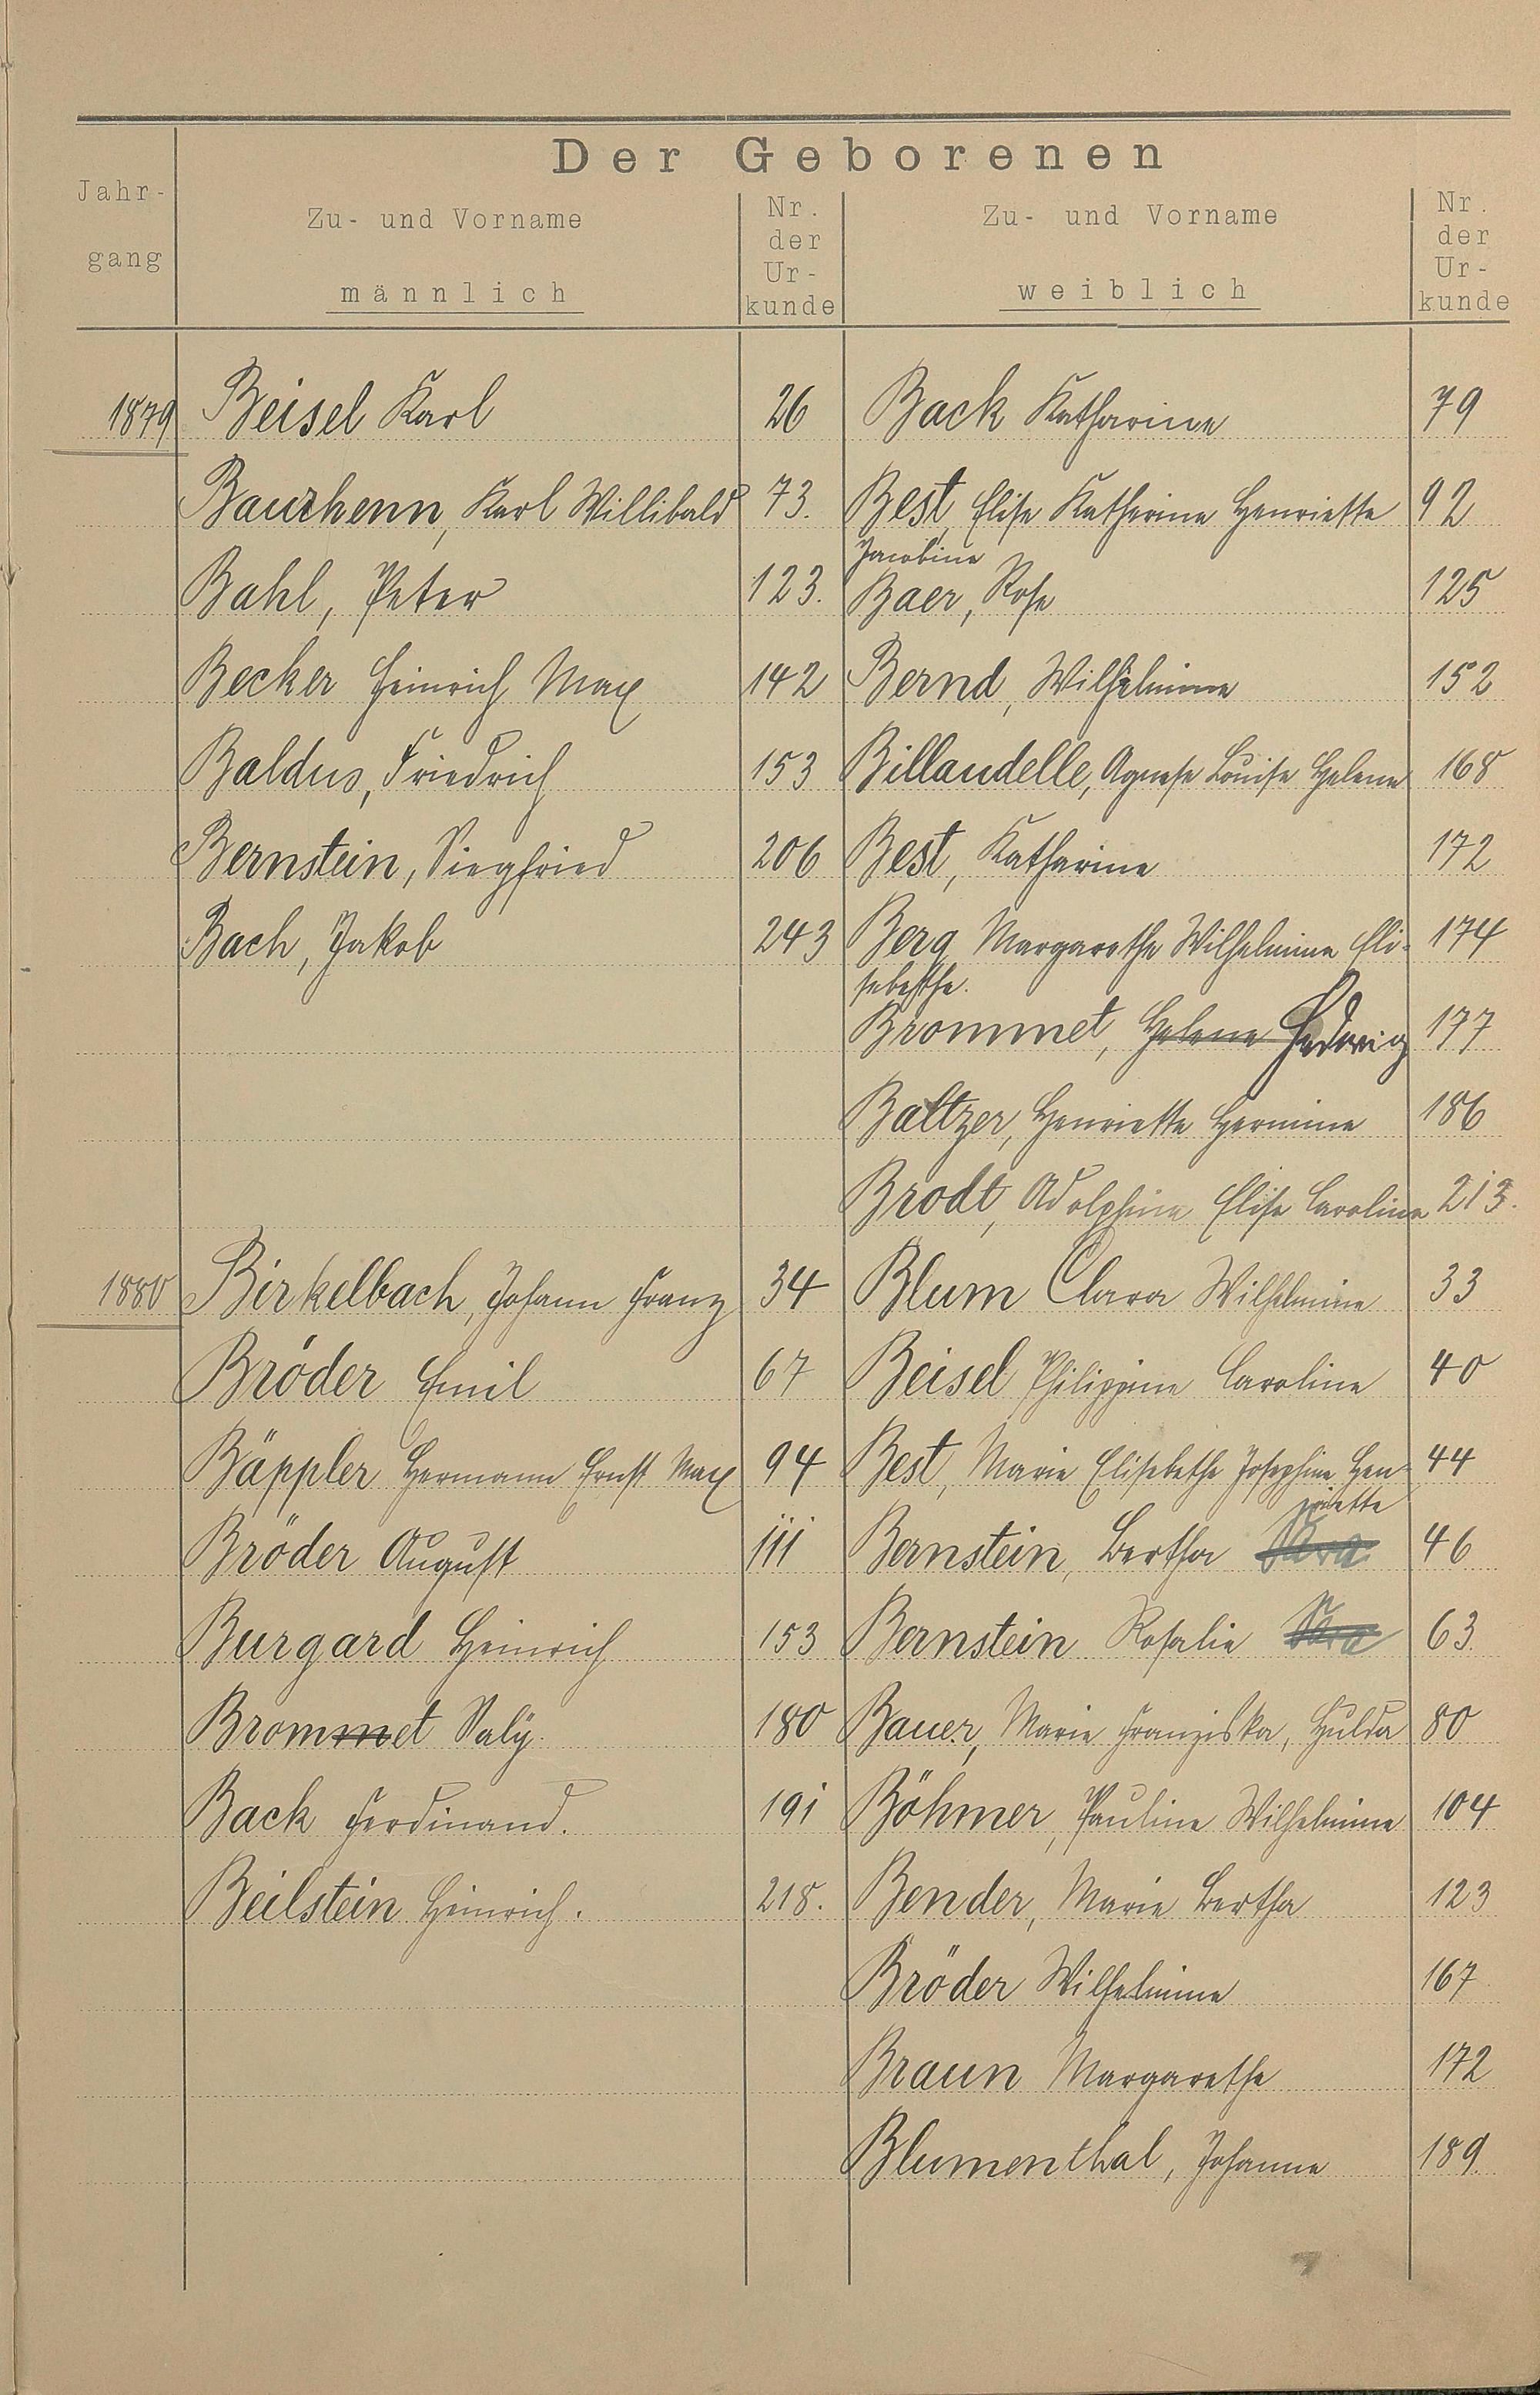 Der Geborenen
Jahr-
gang
Zu- und Vorname
männlich
Nr.
der
Ur-
kunde
Zu- und Vorname
weiblich
Nr.
der
Ur-
kunde
1879 Beisel Karl 26 Back Katharine 79
Bauzhenn, Karl Willibald 73. Best, Elise Katharine Henriette 92
Jacobine
Bahl, Peter 123. Baer, Rosa 125
Becker Heinrich Max 142 Bernd, Wilhelmine 152
Baldus, Friedrich 153 Billaudelle, Agnese Louise Helene 168
Bernstein, Siegfried 206 Best, Katharine 172
Bach, Jakob 243 Berg Margarethe Wilhelmine Eli- 174
sabethe.
Brommet, Helene Hedwig 177
Baltzer, Henriette Hermine 186
Brodt, Adolphine Elise Caroline 213.
1880 Birkelbach, Johann Franz 34 Blum Clara Wilhelmine 33
Bröder Emil 67 Beisel Philippine Caroline 40
Bäppler Hermann Ernst Max 94 Best, Marie Elisabethe Josephine Hen- 44
riette
Bröder August 111 Bernstein, Bertha Sara 46
Burgard Heinrich 153 Bernstein Rosalie Sara 63.
Brommet Saly. 180 Bauer, Marie Franziska, Hulda 80
Back Ferdinand. 191 Böhmer, Pauline Wilhelmine 104
Beilstein Heinrich. 218. Bender, Marie Bertha 123
Bröder Wilhelmine 167
Braun Margarethe 172
Blumenthal, Johanna 189.